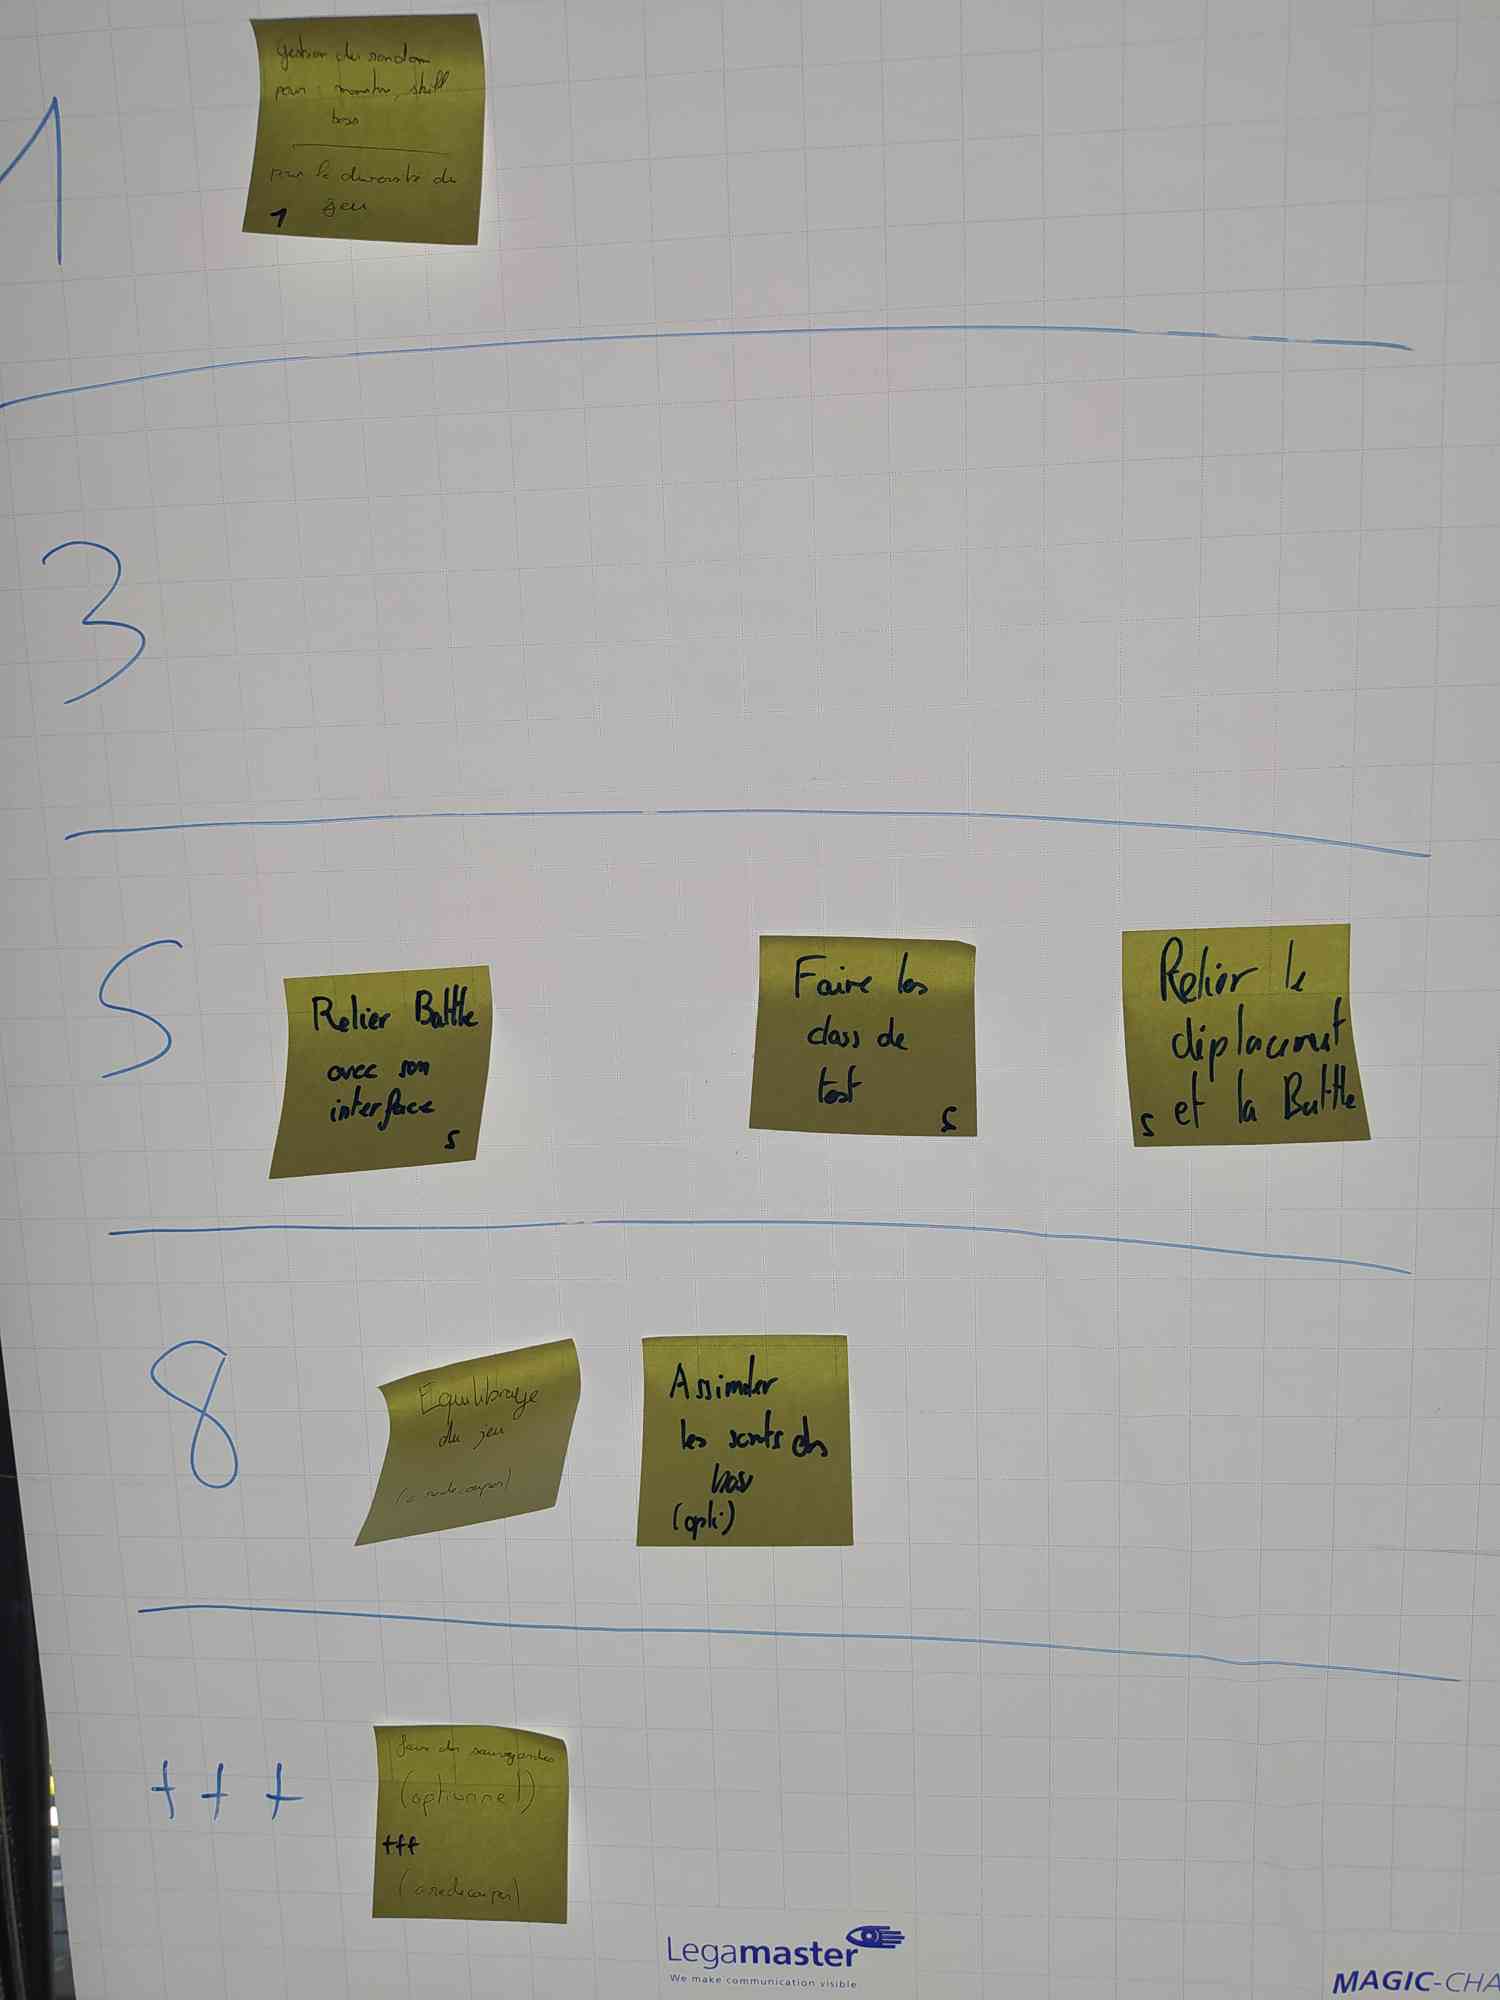 1
gestion du random
pour : monstre, skill
boss
pour la diversité du
jeu
1
3
5
Relier Battle
avec son
interface
5
Faire les
class de
test
5
Relier le
déplacement
et la Battle
5
8
Equilibrage
du jeu
(a redecouper)
Assimiler
les sorts des
boss
(opti)
+++
des sauvegardes
(optionnel)
+++
(a redecouper)
Legamaster
We make communication visible
MAGIC-CHA